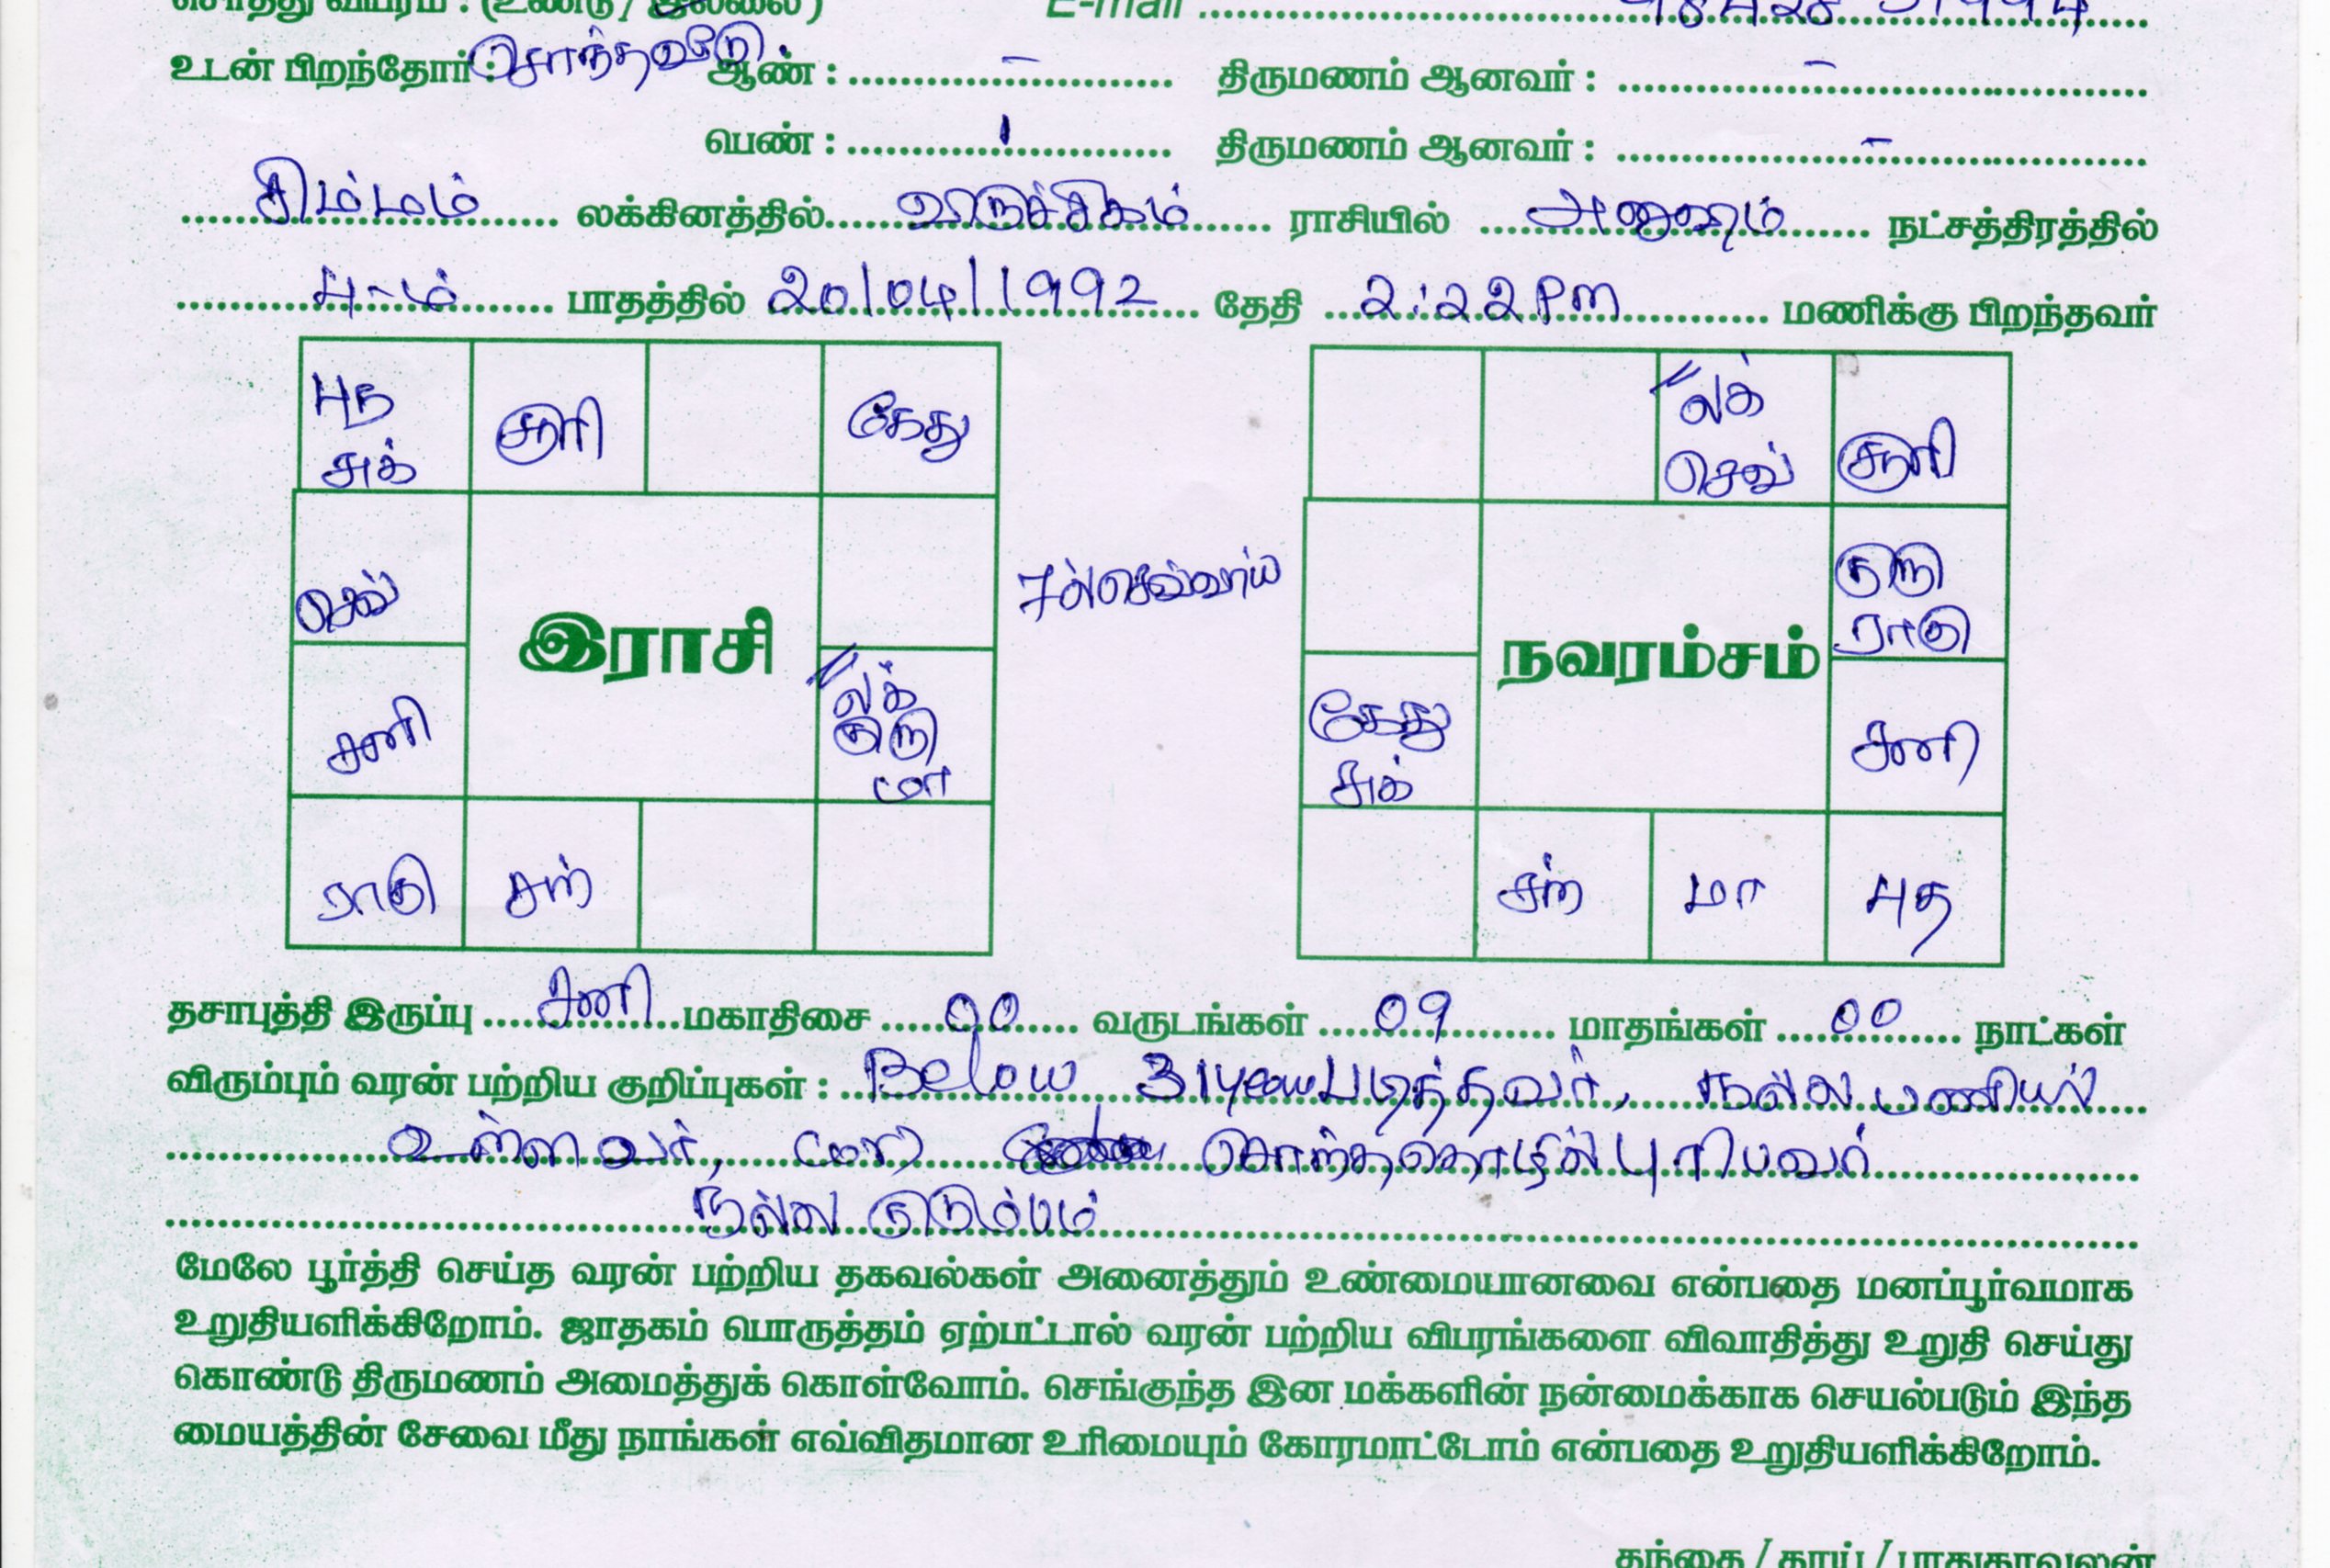 சொத்து விபரம் : (உண்டு / இல்லை) E-mail
உடன் பிறந்தோர் : சொந்தவீடு. ஆண் : – திருமணம் ஆனவர் : –
பெண் : 1 திருமணம் ஆனவர் : –
சிம்மம் லக்கினத்தில் விருச்சிகம் ராசியில் அனுஷம் நட்சத்திரத்தில்
4-ம் பாதத்தில் 20/04/1992 தேதி 2:22 Pm மணிக்கு பிறந்தவர்
புத சூரி கேது லக் சூரி
சுக் செவ்
செவ் 7ல் செவ்வாய் குரு
இராசி நவரம்சம் ராகு
லக்
சனி குரு கேது சனி
மா சுக்
ராகு சந் சந் மா புத
தசாபுத்தி இருப்பு சனி மகாதிசை 00 வருடங்கள் 09 மாதங்கள் 00 நாட்கள்
விரும்பும் வரன் பற்றிய குறிப்புகள் : Below 31year படித்தவர், நல்ல பணியில்
உள்ளவர், (or) சொந்த தொழில் புரிபவர்
நல்ல குடும்பம்
மேலே பூர்த்தி செய்த வரன் பற்றிய தகவல்கள் அனைத்தும் உண்மையானவை என்பதை மனப்பூர்வமாக
உறுதியளிக்கிறோம். ஜாதகம் பொருத்தம் ஏற்பட்டால் வரன் பற்றிய விபரங்களை விவாதித்து உறுதி செய்து
கொண்டு திருமணம் அமைத்துக் கொள்வோம். செங்குந்த இன மக்களின் நன்மைக்காக செயல்படும் இந்த
மையத்தின் சேவை மீது நாங்கள் எவ்விதமான உரிமையும் கோரமாட்டோம் என்பதை உறுதியளிக்கிறோம்.
தந்தை / தாய் / பாதுகாவலன்